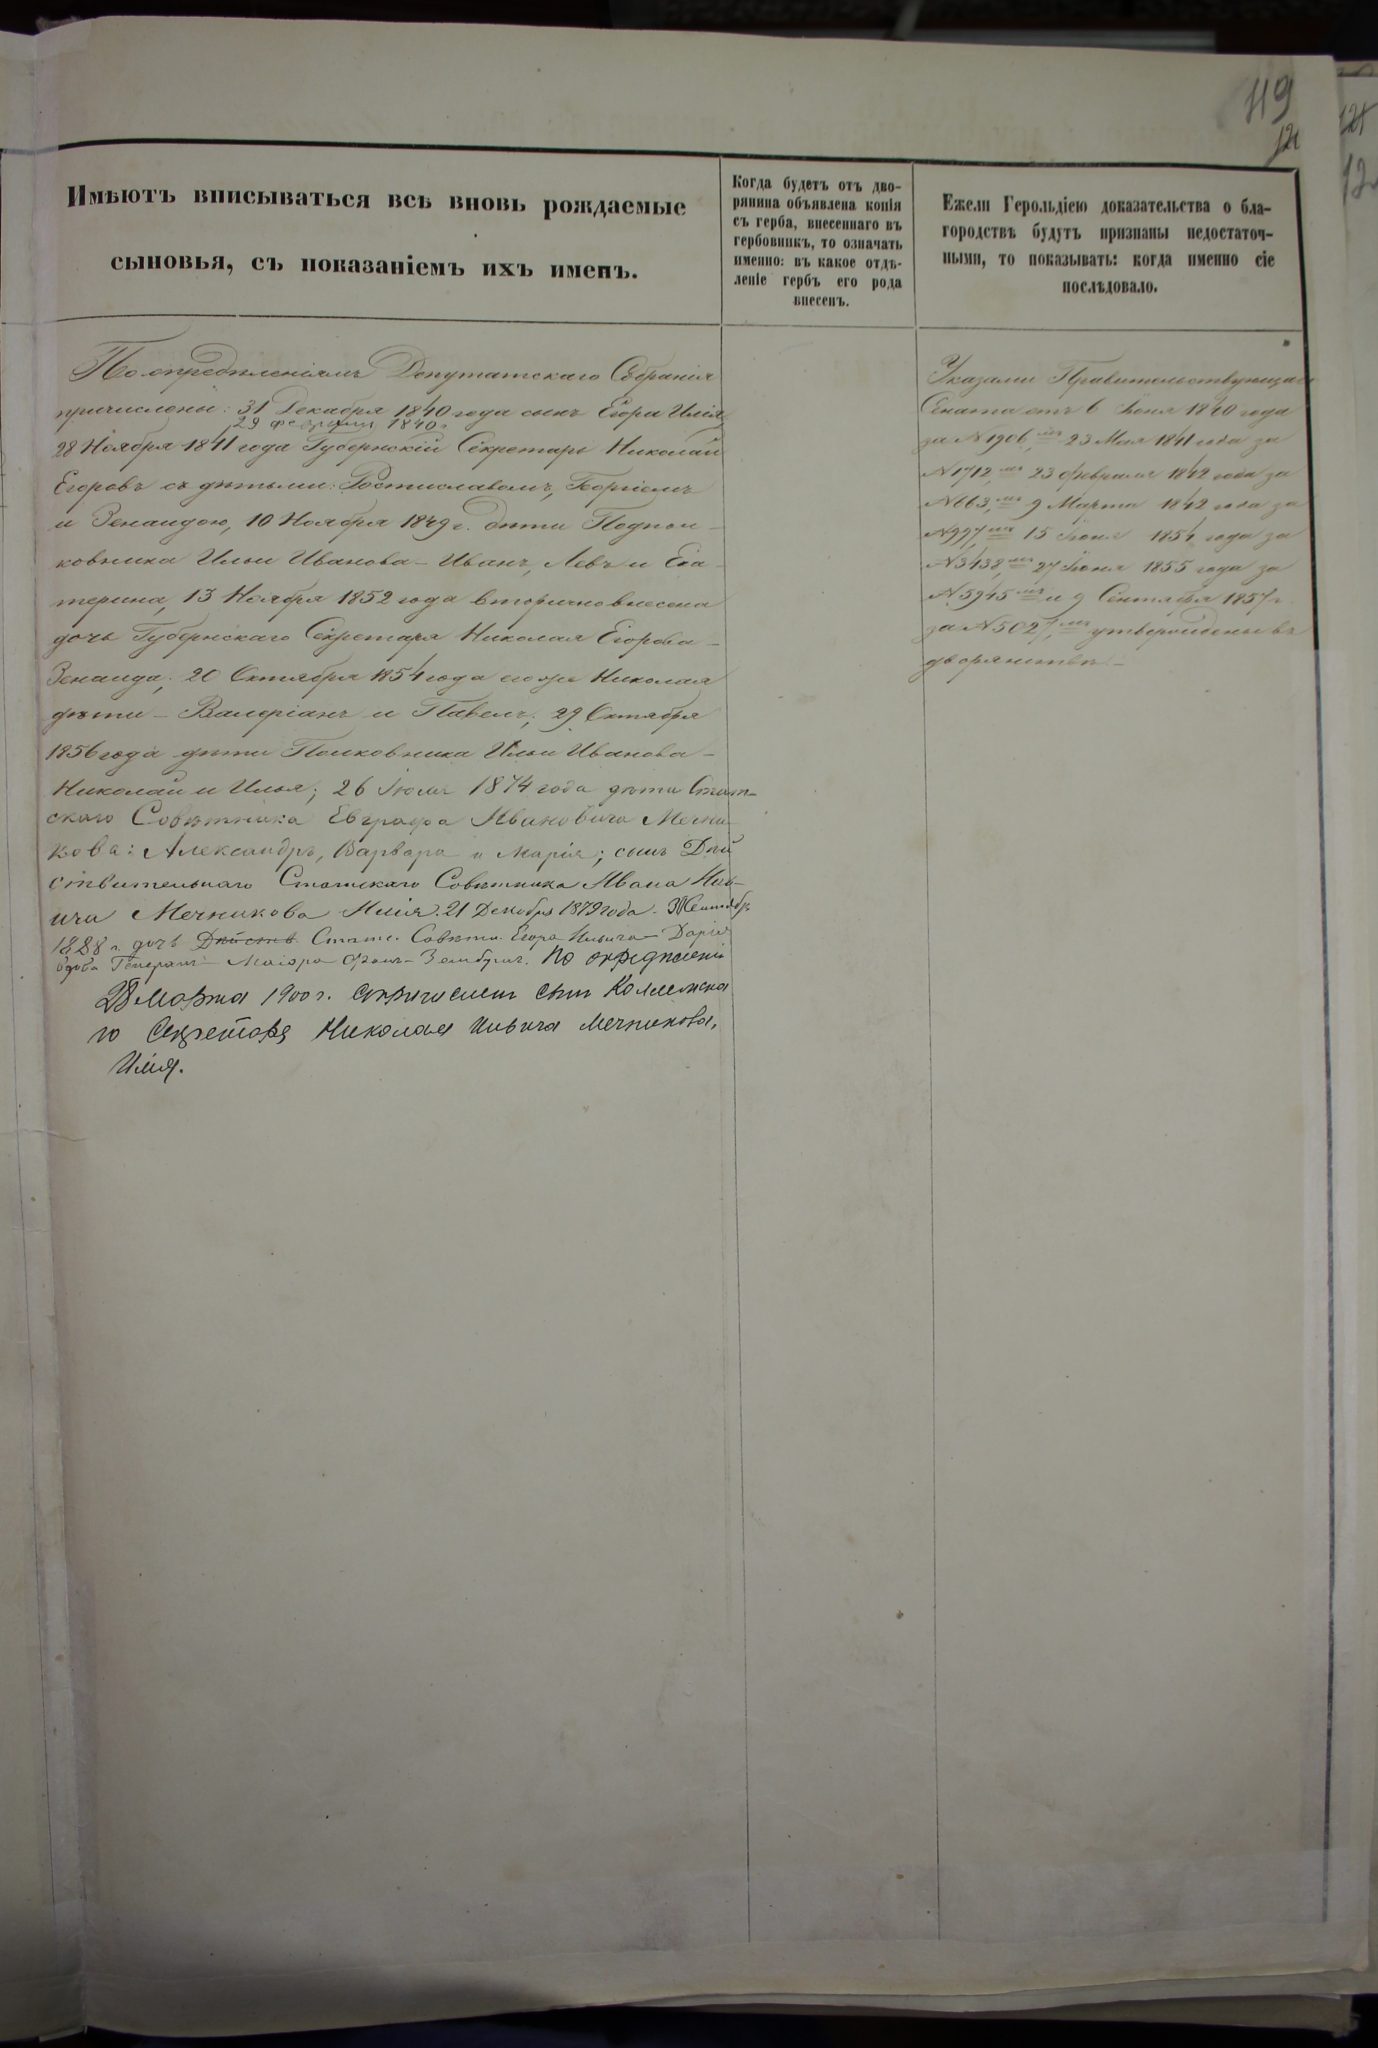 119
121
Имѣютъ вписываться всѣ вновь рождаемые
сыновья, съ показаніемъ ихъ именъ.
Когда будетъ отъ дво-
рянина объявлена копія
съ герба, внесеннаго въ
гербовникъ, то означать
именно: въ какое отдѣ-
леніе гербъ его рода
внесенъ.
Ежели Герольдіею доказательства о бла-
городствѣ будутъ признаны недостаточ-
ными, то показывать: когда именно сіе
послѣдовало.
По опредѣленіямъ Депутатскаго Собранія
причислены: 31 Декабря 1840 года сынъ Егора Илія
29 февраля 1840 г.
28 Ноября 1841 года Губернскій Секретарь Николай
Егоровъ съ дѣтьми: Ростиславомъ, Георгіемъ
и Зенаидою, 10 Ноября 1849 г. дѣти Подпол-
ковника Ильи Иванова – Иванъ, Левъ и Ека-
терина, 13 Ноября 1852 года вторично внесена
дочь Губернскаго Секретаря Николая Егорова –
Зенаида; 20 Октября 1854 года его же Николая
дѣти – Валеріанъ и Павелъ; 29 Октября
1856 года дѣти Полковника Ильи Иванова –
Николай и Илья; 26 Іюля 1874 года дѣти Стат-
скаго Совѣтника Евграфа Ивановича Мечни-
кова: Александръ, Варвара и Марія; сынъ Дѣй
ствительнаго Статскаго Совѣтника Ивана Иль-
ича Мечникова Илія. 21 Декабря 1879 года. 30 Сентябр
1888 г. дочь Дѣйств Статс. Совѣтн. Егора Ильича – Дарія
вдова Генералъ – Маіора фонъ – . По опредѣленію
28 Марта 1900 г. сопричисленъ сынъ Коллежска
го Секретаря Николая Ильича Мечникова,
Илія.
Указами Правительствующаго
Сената отъ 6 Іюня 1840 года
за № 1906, 23 Мая 1841 года за
№ 1712, 23 февраля 1842 года за
№ 663, 9 Марта 1842 года за
№ 997, 15 Іюня 1854 года за
№ 3438, 27 Іюня 1855 года за
№ 5945 и 9 Сентября 1857 г.
за № 5027, утверждены въ
дворянствѣ –